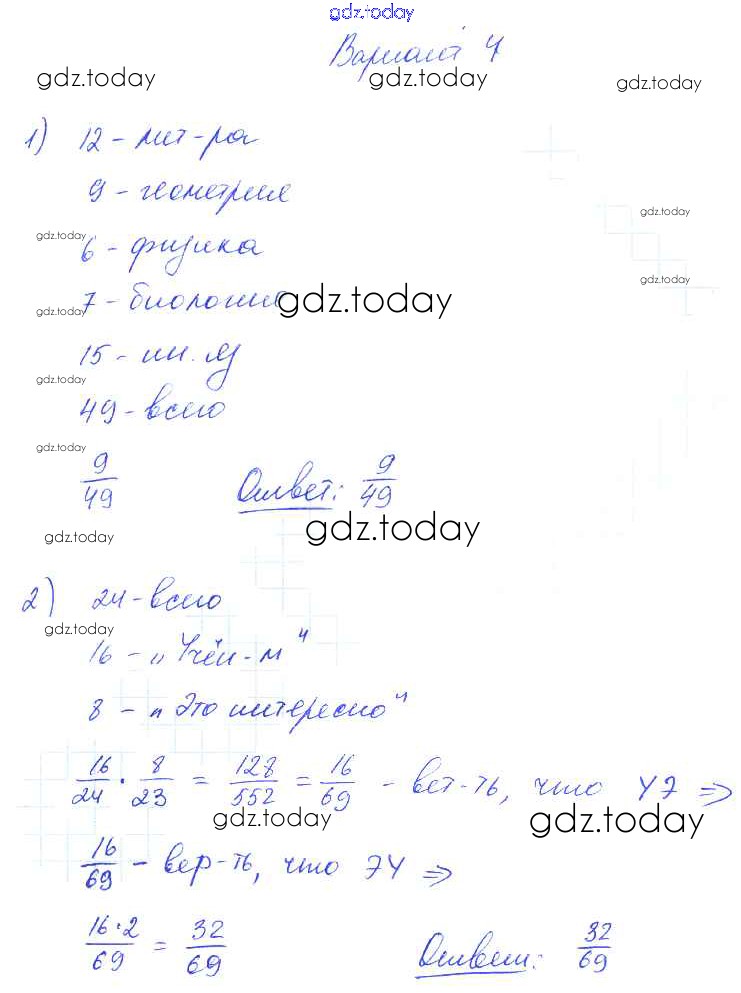 gdz.today
Вариант 4
gdz.today gdz.today gdz.today
1) 12 - лит-ра
9 - геометрия
gdz.today
gdz.today
6 - физика
gdz.today
7 - биология gdz.today
gdz.today
15 - ин. яз
gdz.today
49 - всего
gdz.today
9/49 Ответ: 9/49
gdz.today
gdz.today
2) 24 - всего
gdz.today
16 - „Учён-м"
8 - „Это интересно"
16/24 · 8/23 = 128/552 = 16/69 - вет-ть, что УЭ ⇒
gdz.today gdz.today
16/69 - вер-ть, что ЭУ ⇒
16·2/69 = 32/69 Ответ: 32/69